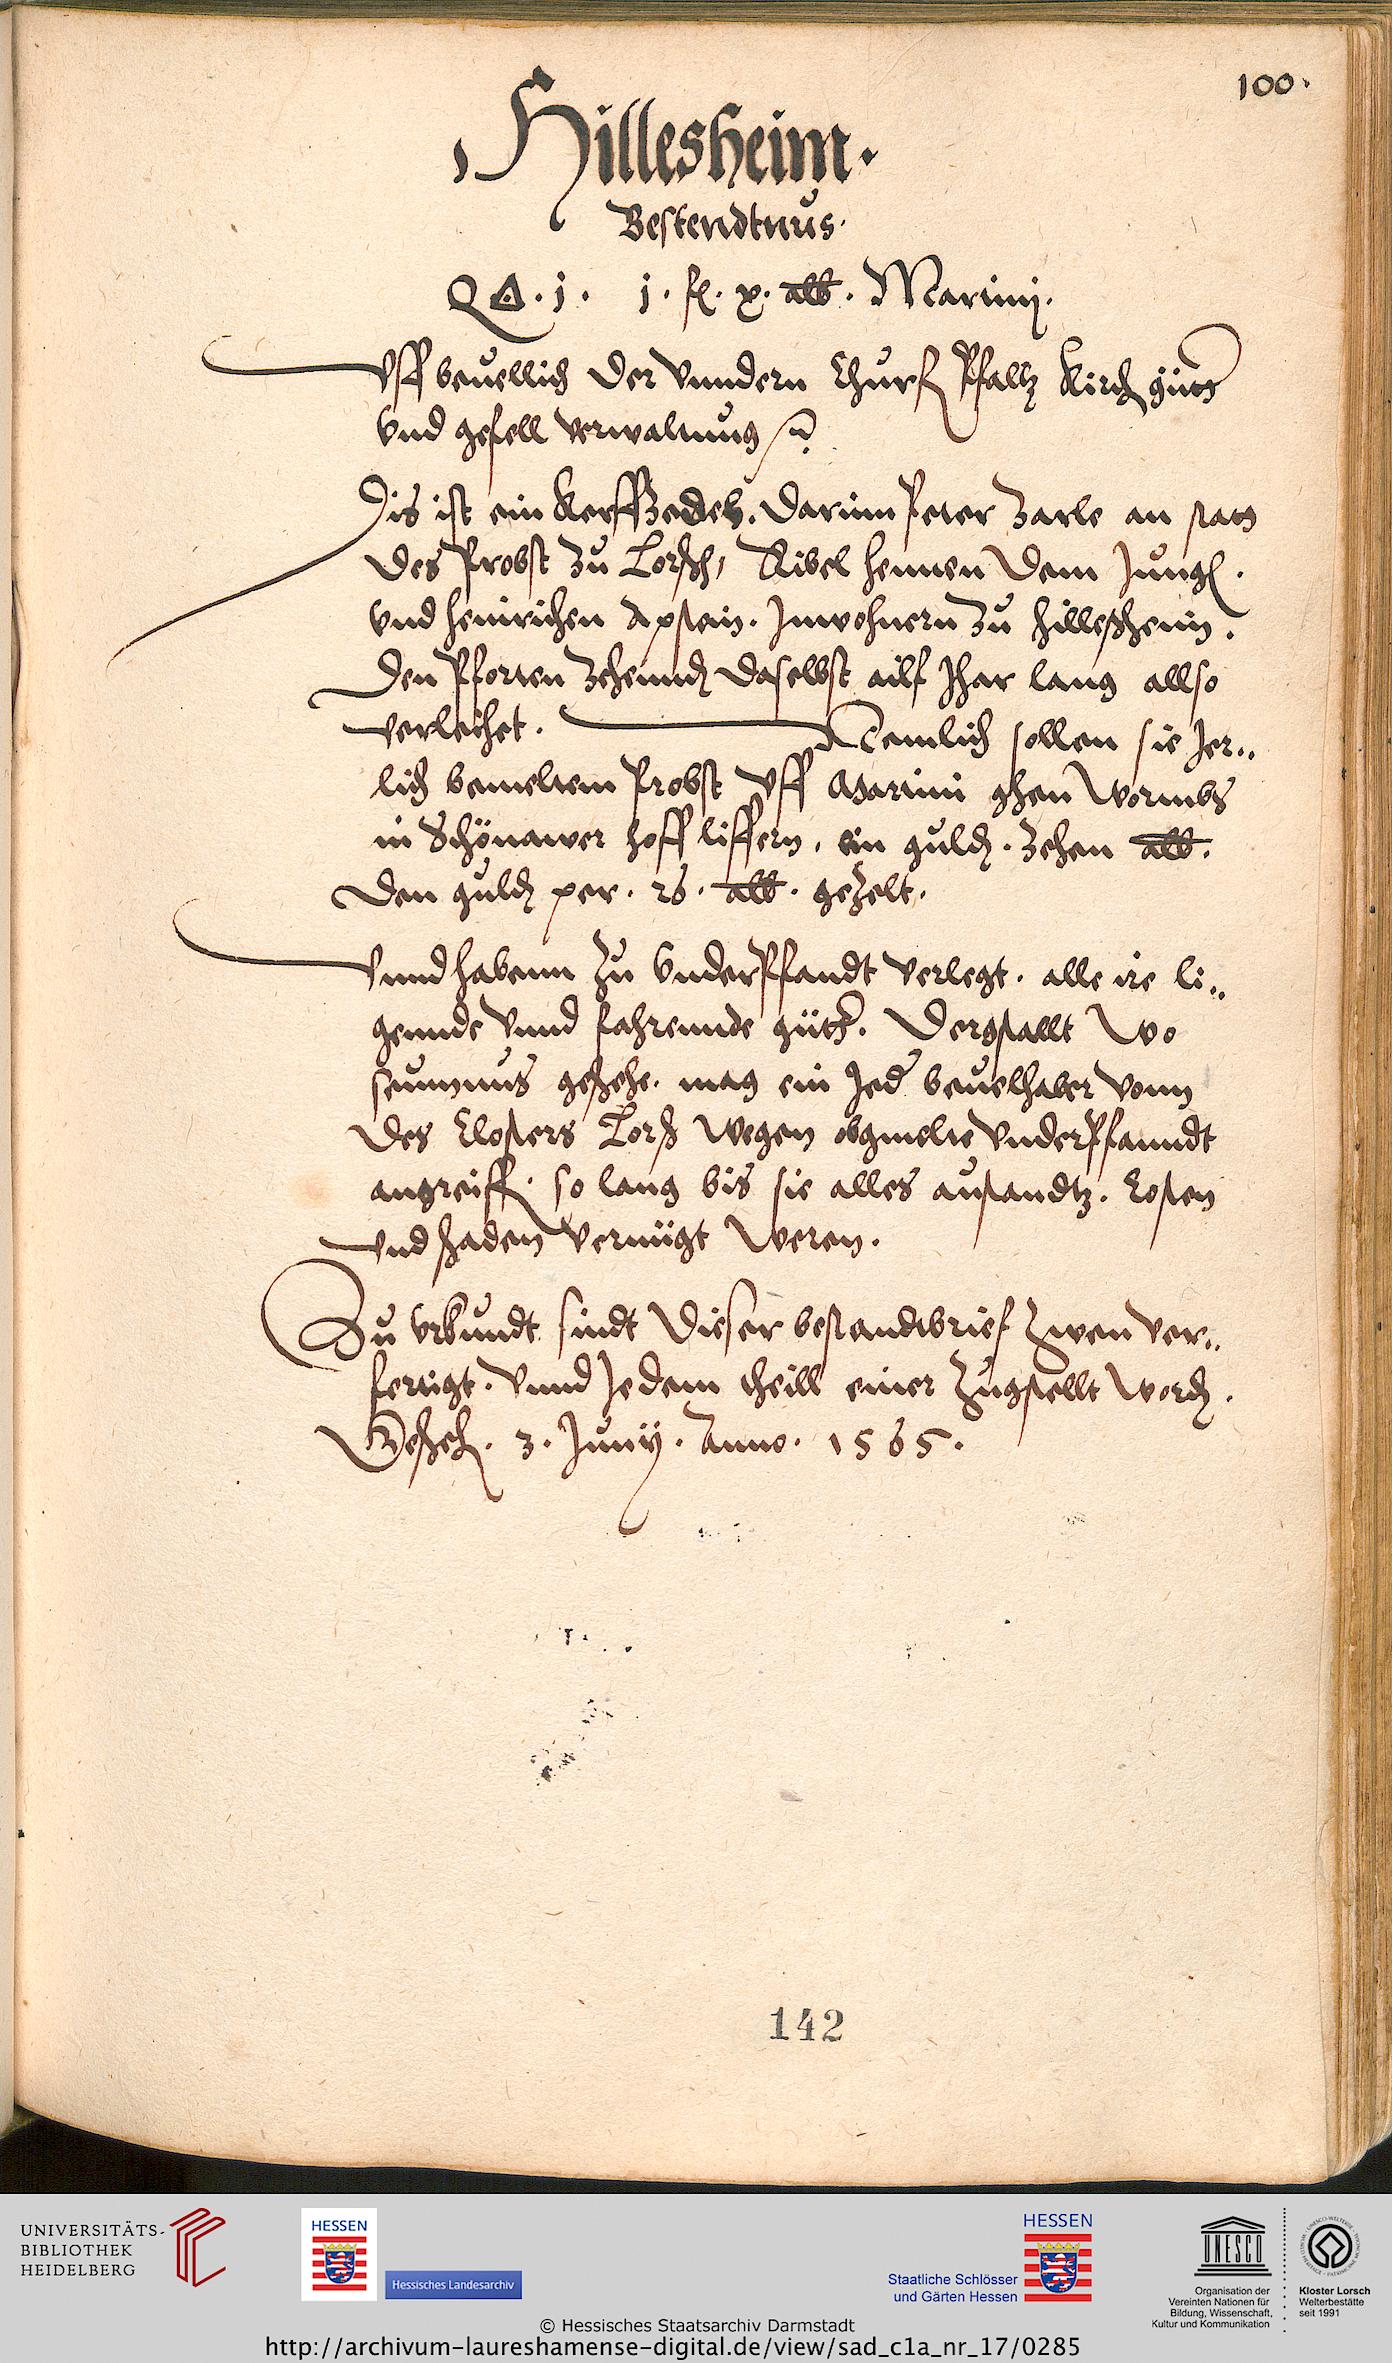 100.
Hillesheim.
Bestendtnus.
1. fl. x. alb. Martinj.
Vff beuellich der Vnndern Churf Pfaltz Kirch güter
Vnd gefell verwaltung
Dis ist ein Kerffzedel. Darinn Peter Zarle an stat
des Probst zu Lorsch, Ribel hennen dem Jung.
Vnd heinrichen Apstein. Inwohnern zu hilleßheim.
Den Pforren Zehennd daselbst ailf Jhar lang allso
verleihet. Nemlich sollen sie Jer„
lich bemeltem Probst vff Martini ghen Wormbs
in Schönawer hoff liffern. ein guld. Zehen alb.
den guld per. 26. alb. gezelt.
Vnnd habenn zu Vnderpfandt verlegt. alle ire li„
gennde Vnnd fahrennde güter. Dergstallt Wo
seumnus geschehe. mag ein Jed beuelhaber vonn
des Closters Lorß Wegen obgmelte Vnderpfanndt
angreiff. so lang bis sie alles austandtz. Costen
vnd schaden Vernügt Weren.
Zu Vrkundt sindt Dieser bestandtbrief Zwen ver„
fertigt. Vnnd Jedem theill einer Zugstellt Word.
Gescheh. 3. Junij. Anno. 1565.
142
UNIVERSITÄTS-
BIBLIOTHEK
HEIDELBERG
HESSEN
Hessisches Landesarchiv
HESSEN
Staatliche Schlösser
und Gärten Hessen
UNESCO
Organisation der
Vereinten Nationen für
Bildung, Wissenschaft,
Kultur und Kommunikation
Kloster Lorsch
Welterbestätte
seit 1991
© Hessisches Staatsarchiv Darmstadt
http://archivum-laureshamense-digital.de/view/sad_c1a_nr_17/0285